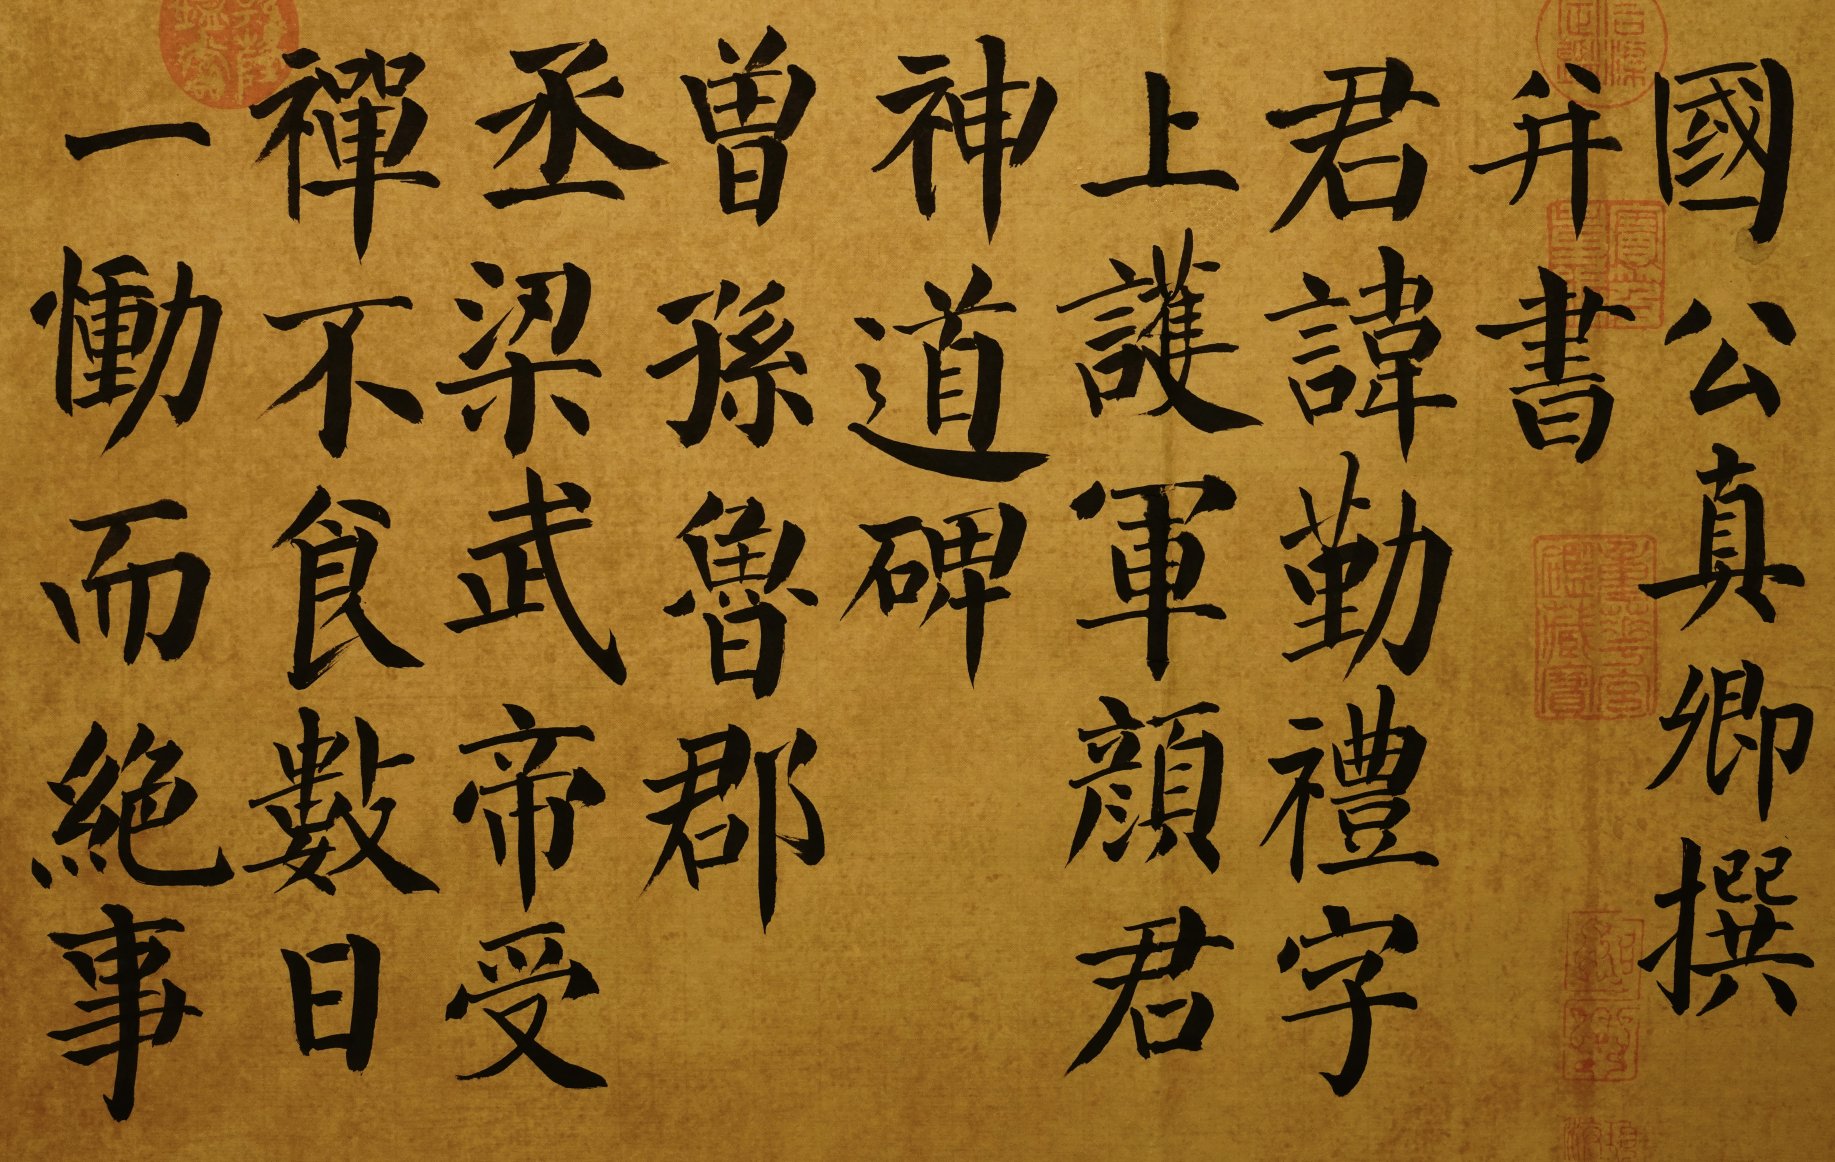 國公真卿撰
并書
君諱勤禮字
上護軍顔君
神道碑
曽孫魯郡
丞梁武帝受
禪不食數日
一慟而絶事